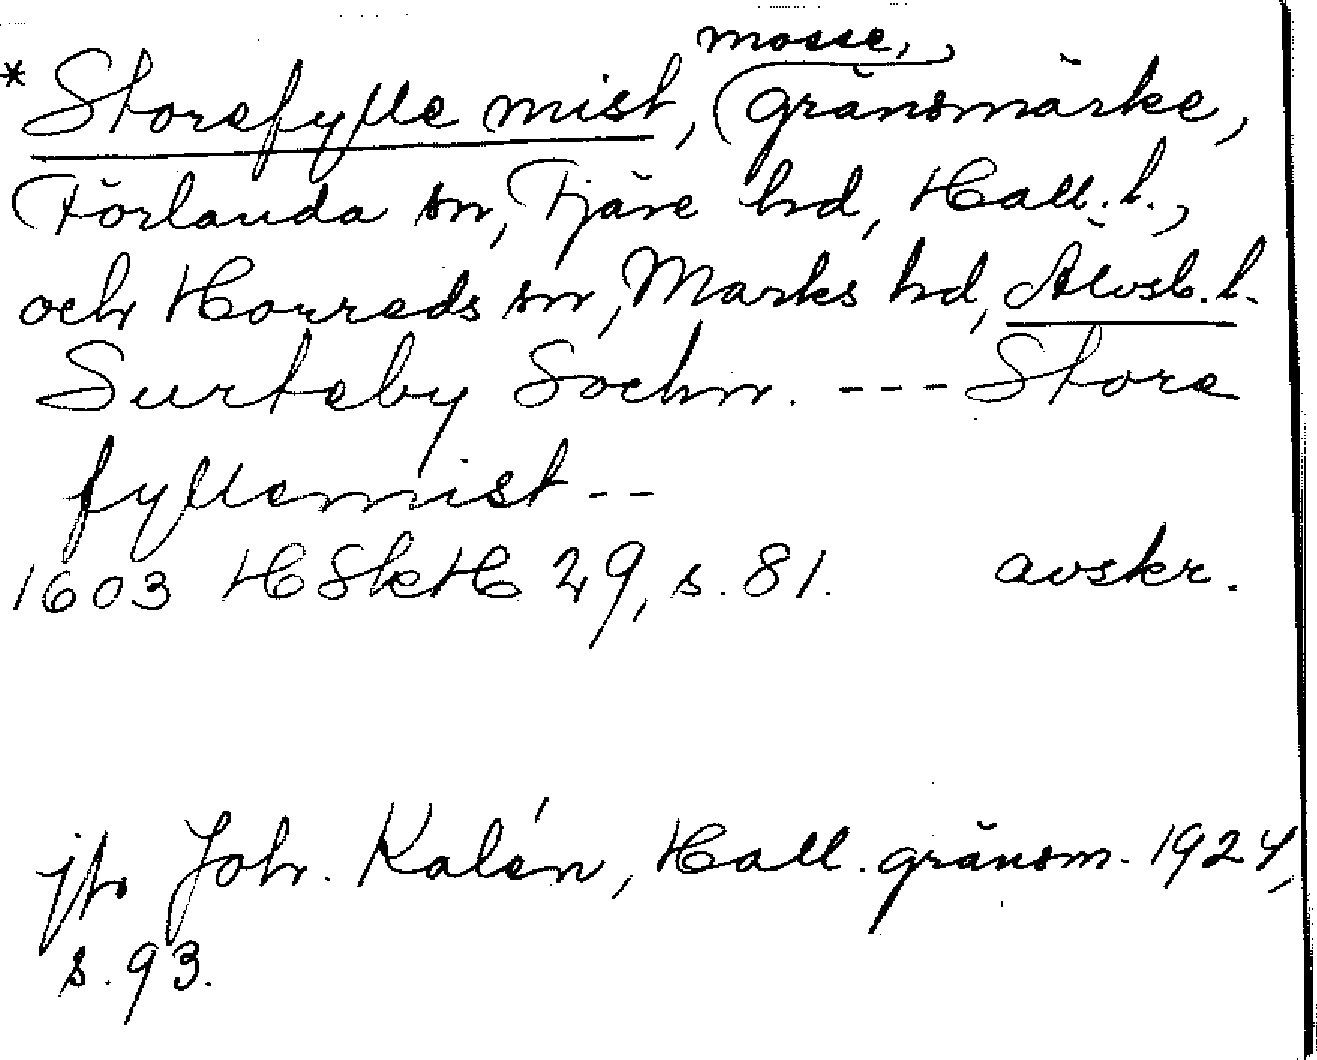 mosse,
* Storefylle mist, gränsmärke,
Förlanda sn, Fjäre hd, Hall. l.,
och Horreds sn, Marks hd, Älvsb. l.
Surteby Sochn. --- Store
fyllemist --
1603 HSkH 29, s. 81. avskr.
jfr Joh. Kalén, Hall. gränsm. 1924,
s. 93.